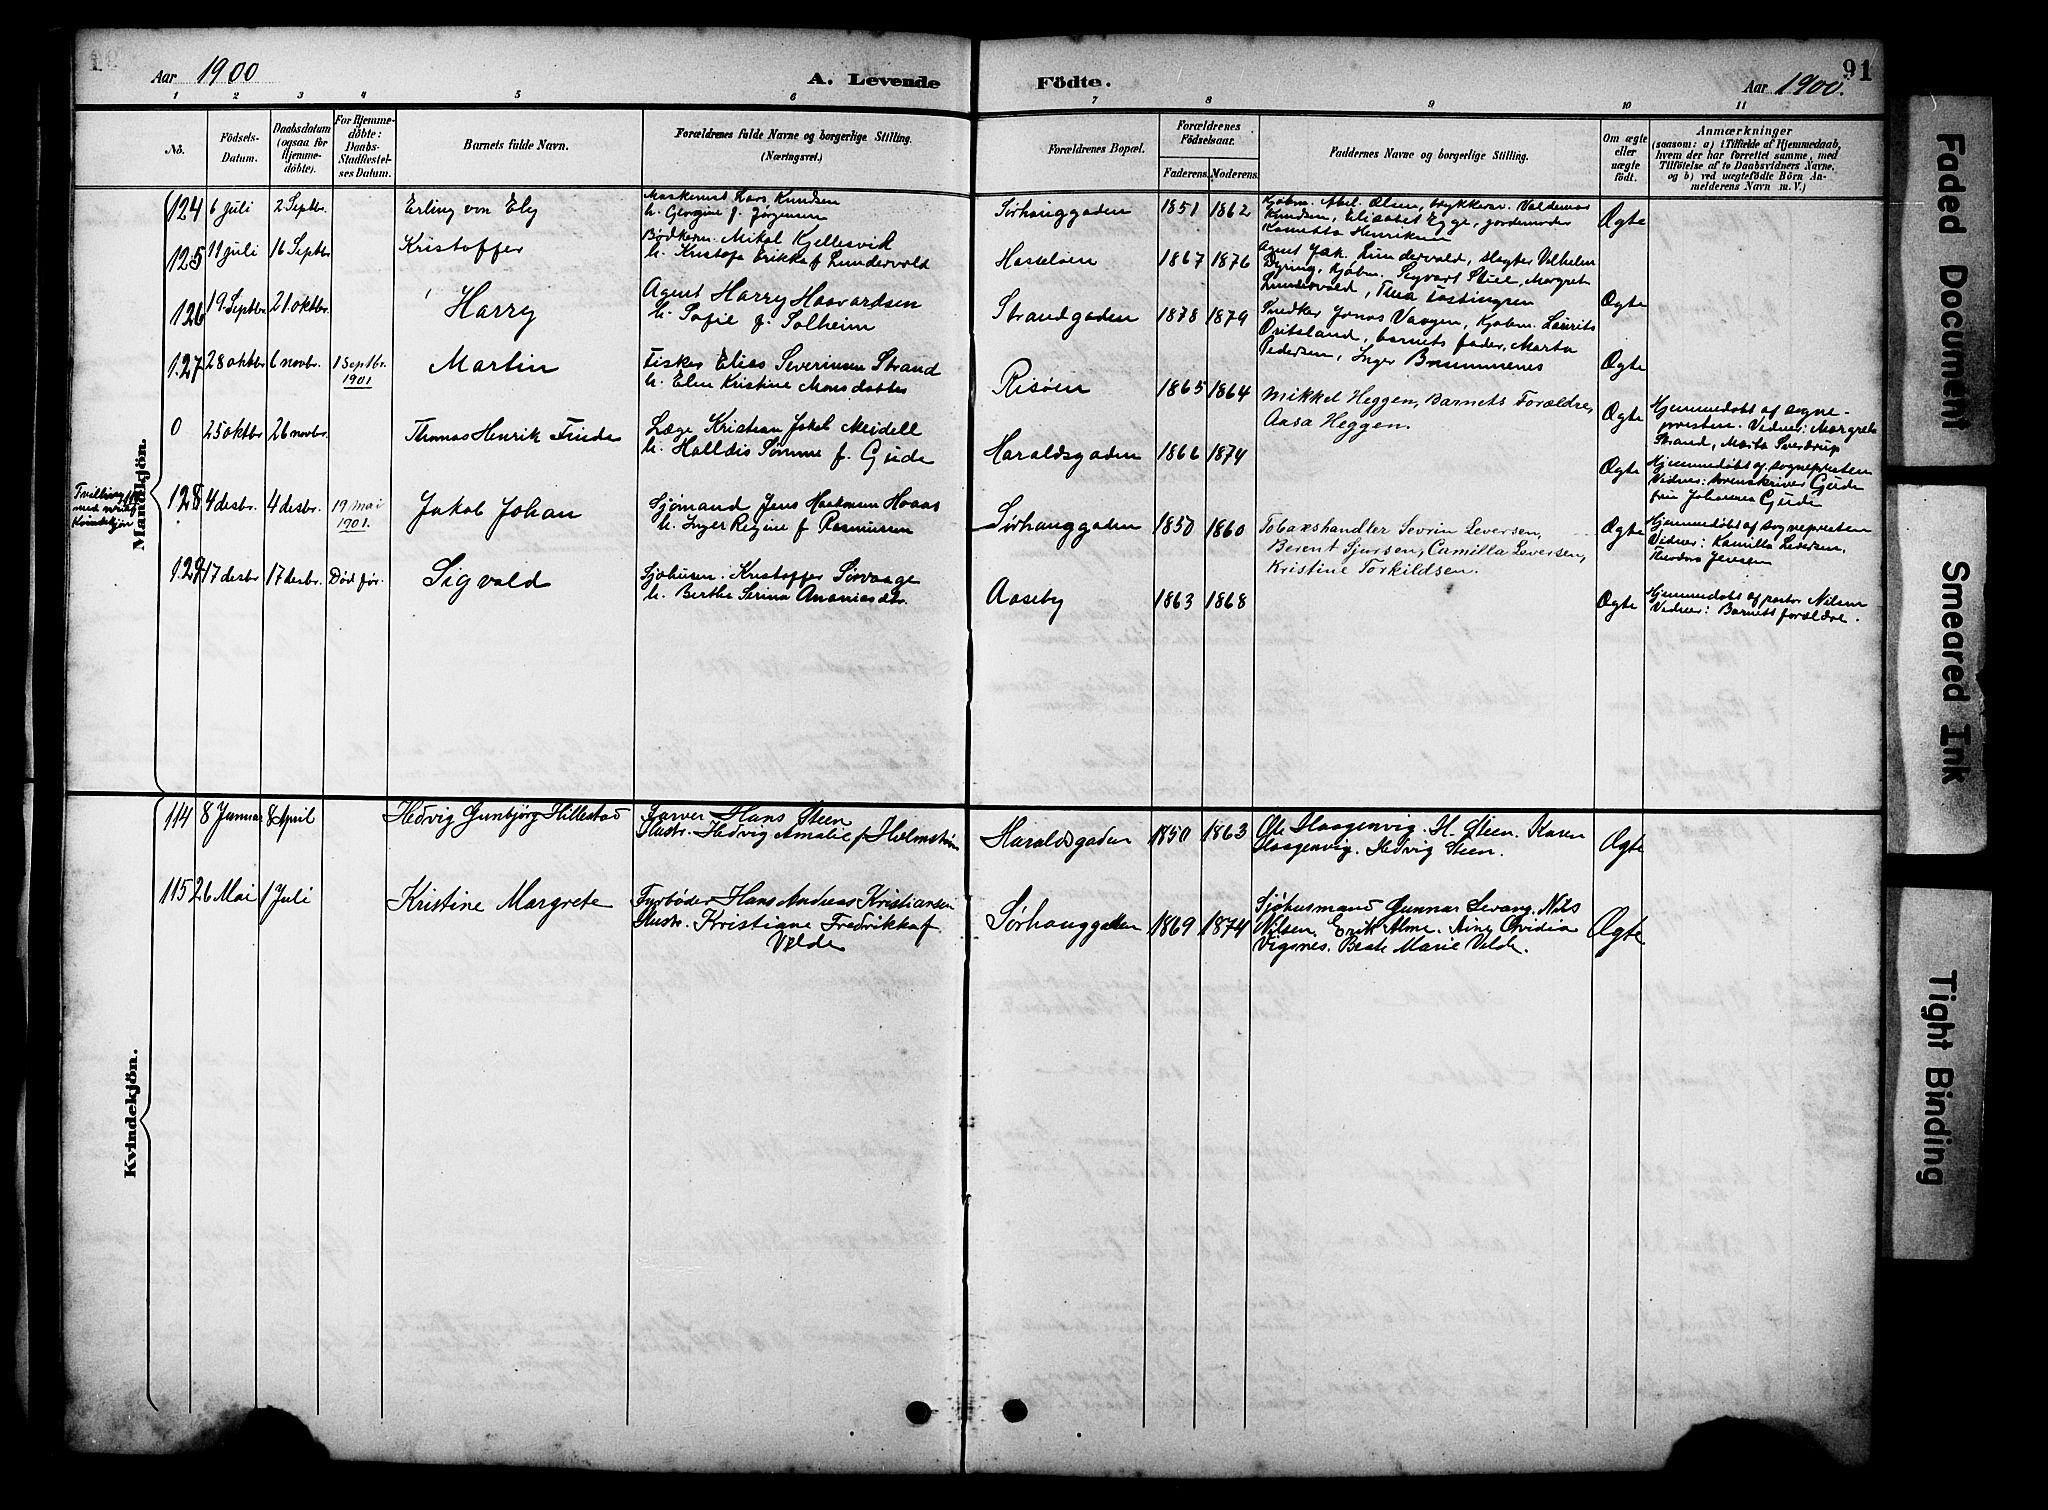 Aar 1900
A. Levende
Fødte.
Aar 1900.
91
1 2 3 4 5 6 7 8 9 10 11
No.
Födsels-
Datum.
Daabsdatum
(ogsaa for
Hjemme-
döbte).
For Hjemme-
döbte:
Daabs-
Stadfæstel-
ses Datum.
Barnets fulde Navn.
Forældrenes fulde Navne og borgerlige Stilling.
(Næringsvei.)
Forældrenes Bopæl.
Forældrenes
Födselsaar.
Faderens. Moderens.
Faddernes Navne og borgerlige Stilling.
Om ægte
eller
uægte
födt.
Anmærkninger
(saasom: a) i Tilfælde af Hjemmedaab,
hvem der har forrettet samme, med
Tilföielse af to Daabsvidners Navne,
og b) ved uægtefödte Börn An-
melderens Navn m. V.)
Mandkjön.
124 6 juli 2 Septbr. Erling von Ely
Maskinist Lars Knudsen
h. Gergine f. Jørgensen
Sørhauggaden 1851 1862
Kjøbm. Abel Olsen, trykkeriv. Valdemar
Knudsen, Elisabet Egge, jordemoder
Henriksen
Ægte
125 11 juli 16 Septbr Kristoffer
Bødkerm. Mikal Kjellesvik
h. Kristofa Erikka f Lundevold
Hasseløen 1867 1876
Agent Jak. Lundervald, slagter Vilhelm
Dyring, Kjøbm. Sigvart Stue, Margret
Lundervald, Thea Tostingsen
Ægte
126 19. Septbr 21 oktbr. Harry
Agent Harry Haavardsen
h. Sofie f. Solheim
Strandgaden 1878 1879
Snedker Jonas Vaagen, Kjøbm. Laurits
Øritsland, barnets fader, Marta
Pedersen, Inger Brummenes
Ægte
127 28 oktbr 6 novbr. 1 Septbr.
1901
Martin
Fisker Elias Severinsen Strand
h. Elen Kristine Monsdatter
Risøen 1865 1864
Mikkel Heggen, Barnets Forældre,
Aasa Heggen.
Ægte
Hjemmedøbt af sogne-
presten. Vidner: Margrete
Strand, Marta Sverdrup
0 25 oktbr 26 novbr. Thomas Henrik Finde
Læge Kristian Jakob Meidell
h. Halldis Sømme f. Gjide
Haraldsgaden 1866 1874
Ægte
Hjemmedøbt af sognepresten
Vidner: sorenskriver Gjide
fru Johanna Gjide
Tvilling
med
Kvindekjön
128 4 desbr. 4 desbr. 19 mai
1901.
Jakob Johan
Sjømand Jens Haaas
h. Inger Regine f Rasmussen
Sørhauggaden 1850 1860
Tobakshandler Sevrin Seversen,
Berent Sjursen, Camilla Seversen,
Kristine Torkildsen.
Ægte
Hjemmedøbt af sognepresten
Vidner: Kamilla Seversen,
Theodora Jensen
129 17 desbr 17 desbr. Død før. Sigvald
Sjøhusm. Kristoffer Sørvaage
h. Berthe Serina Ananiasdtr.
Aaseby 1863 1868
Ægte
Hjemmedøbt af pastor Nilsen
Vidner: Barnets forældre.
Kvindekjön.
114 8 Januar 8 April Hedvig Gunbjørg Hillestad
Farver Hans Steen
Hustr. Hedvig Amalie f Holmstrøm
Haraldsgaden 1850 1863
Ole Haagenvig. H. Steen. Karen
Haagenvig. Hedvig Steen.
Ægte
115 26 Mai 1 Juli Kristine Margrete
Fyrbøder Hans Andreas Kristiansen
Hustr. Kristiane Fredrikka f.
Velde
Sørhauggaden 1869 1874
Sjøhusmand Gunnar Levang. Nils
Nilsen. Erik Alme. Ovidia
Vigsnes. Beate Marie Velde.
Ægte
Faded Document
Smeared Ink
Tight Binding